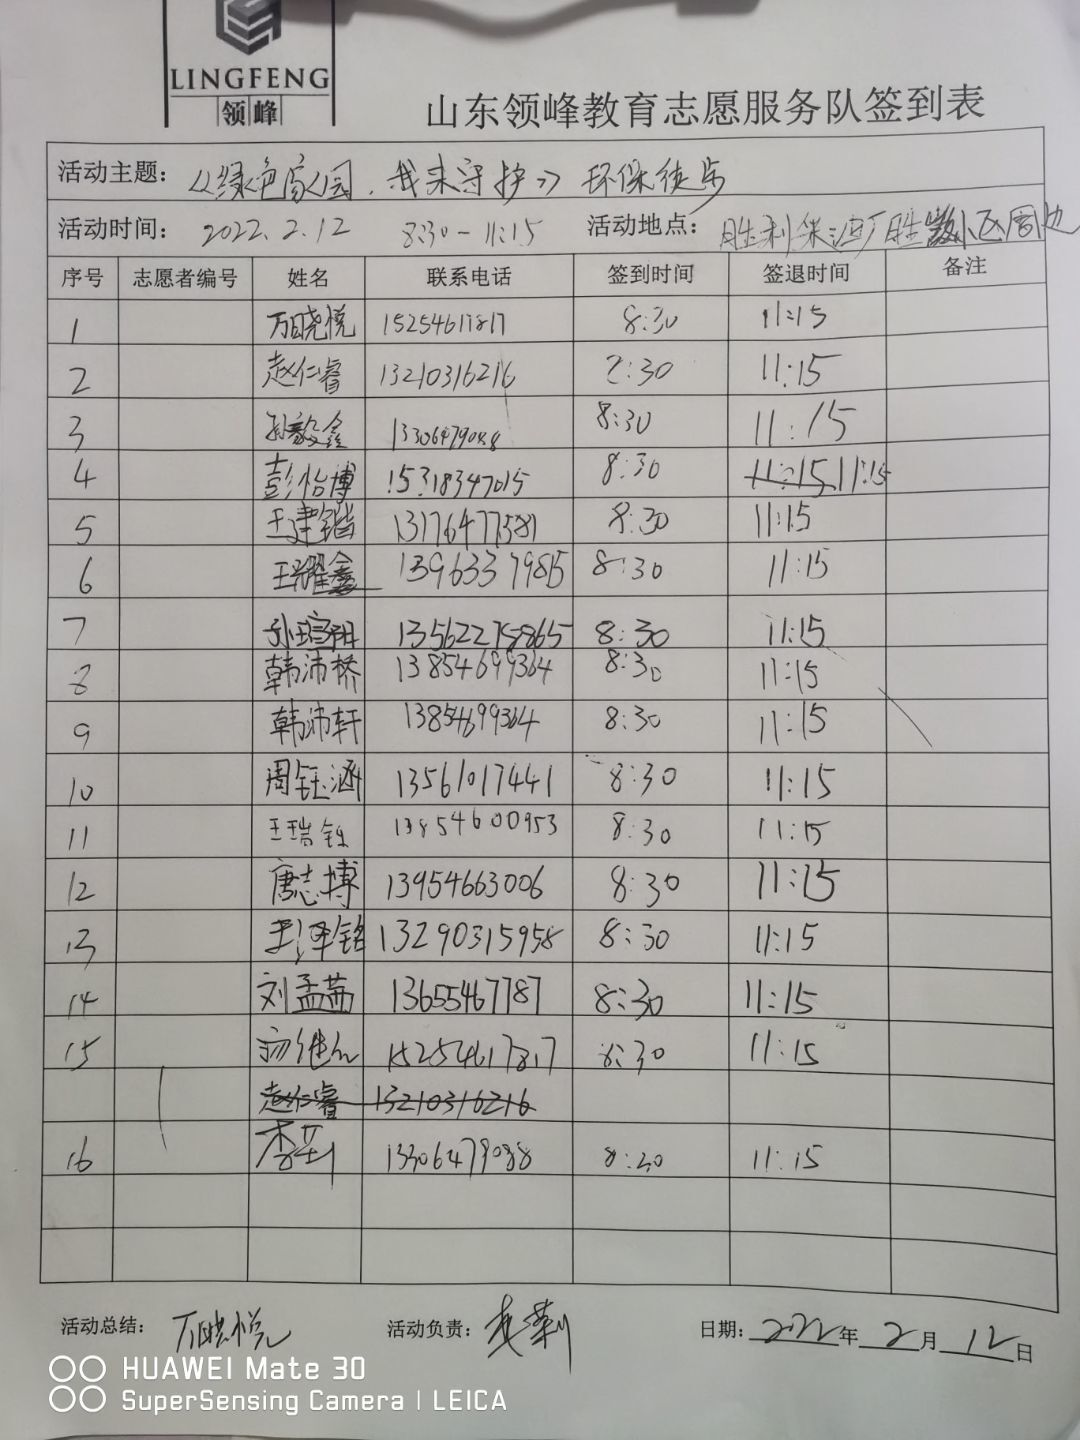 LINGFENG
领峰
山东领峰教育志愿服务队签到表
活动主题: 《绿色家园,我来守护》环保徒步
活动时间: 2022.2.12 8:30-11:15 活动地点: 胜利采油厂胜 小区周边
序号 志愿者编号 姓名 联系电话 签到时间 签退时间 备注
1 万晓悦 15254617817 8:30 11:15
2 赵仁睿 13210316216 8:30 11:15
3 孙毅鑫 13306479088 8:30 11:15
4 彭怡博 15318347015 8:30 11:15 11:15
5 王建锴 13176477581 8:30 11:15
6 王耀鑫 13963379815 8:30 11:15
7 孙瑄翔 13562275865 8:30 11:15
8 韩沛桥 13854699364 8:30 11:15
9 韩沛轩 13854699364 8:30 11:15
10 周钰涵 13561017441 8:30 11:15
11 王瑞钰 13854600953 8:30 11:15
12 唐志博 13954663006 8:30 11:15
13 王泽铭 13290315958 8:30 11:15
14 刘孟茹 13655467787 8:30 11:15
15 15254617817 8:30 11:15
赵仁睿 13210316216
16 李莉 13306479088 8:30 11:15
活动总结: 万晓悦 活动负责: 日期: 2022年2月12日
HUAWEI Mate 30
SuperSensing Camera | LEICA